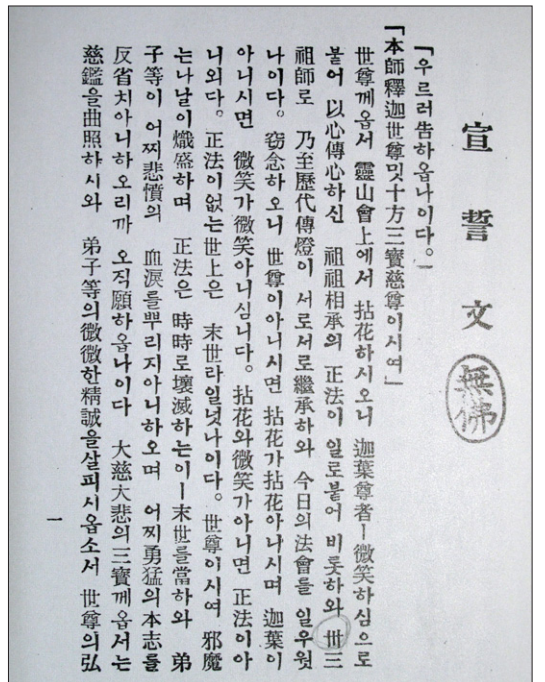 宣誓文
無佛
「우르러告하옵나이다。」
「本師釋迦世尊밋十方三寶慈尊이시여」
世尊께옵서 靈山會上에서 拈花하시오니 迦葉尊者ㅣ微笑하심으로
붙어 以心傳心하신 祖祖相承의 正法이 일로붙어 비롯하와 卅三
祖師로 乃至歷代傳燈이 서로서로繼承하와 今日의法會를 일우웟
나이다。 窃念하오니 世尊이아니시면 拈花가拈花아니시며 迦葉이
아니시면 微笑가微笑아니심니다。 拈花와微笑가아니면 正法이아
니외다。 正法이없는世上은 末世라일넛나이다。 世尊이시여 邪魔
는나날이熾盛하며 正法은 時時로壞滅하는이ㅣ末世를當하와 弟
子等이 어찌悲憤의 血淚를뿌리지아니하오며 어찌勇猛의本志를
反省치아니하오리까 오직願하옵나이다 大慈大悲의三寶께옵서는
慈鑑을曲照하시와 弟子等의微微한精誠을살피시옵소서 世尊의弘
一